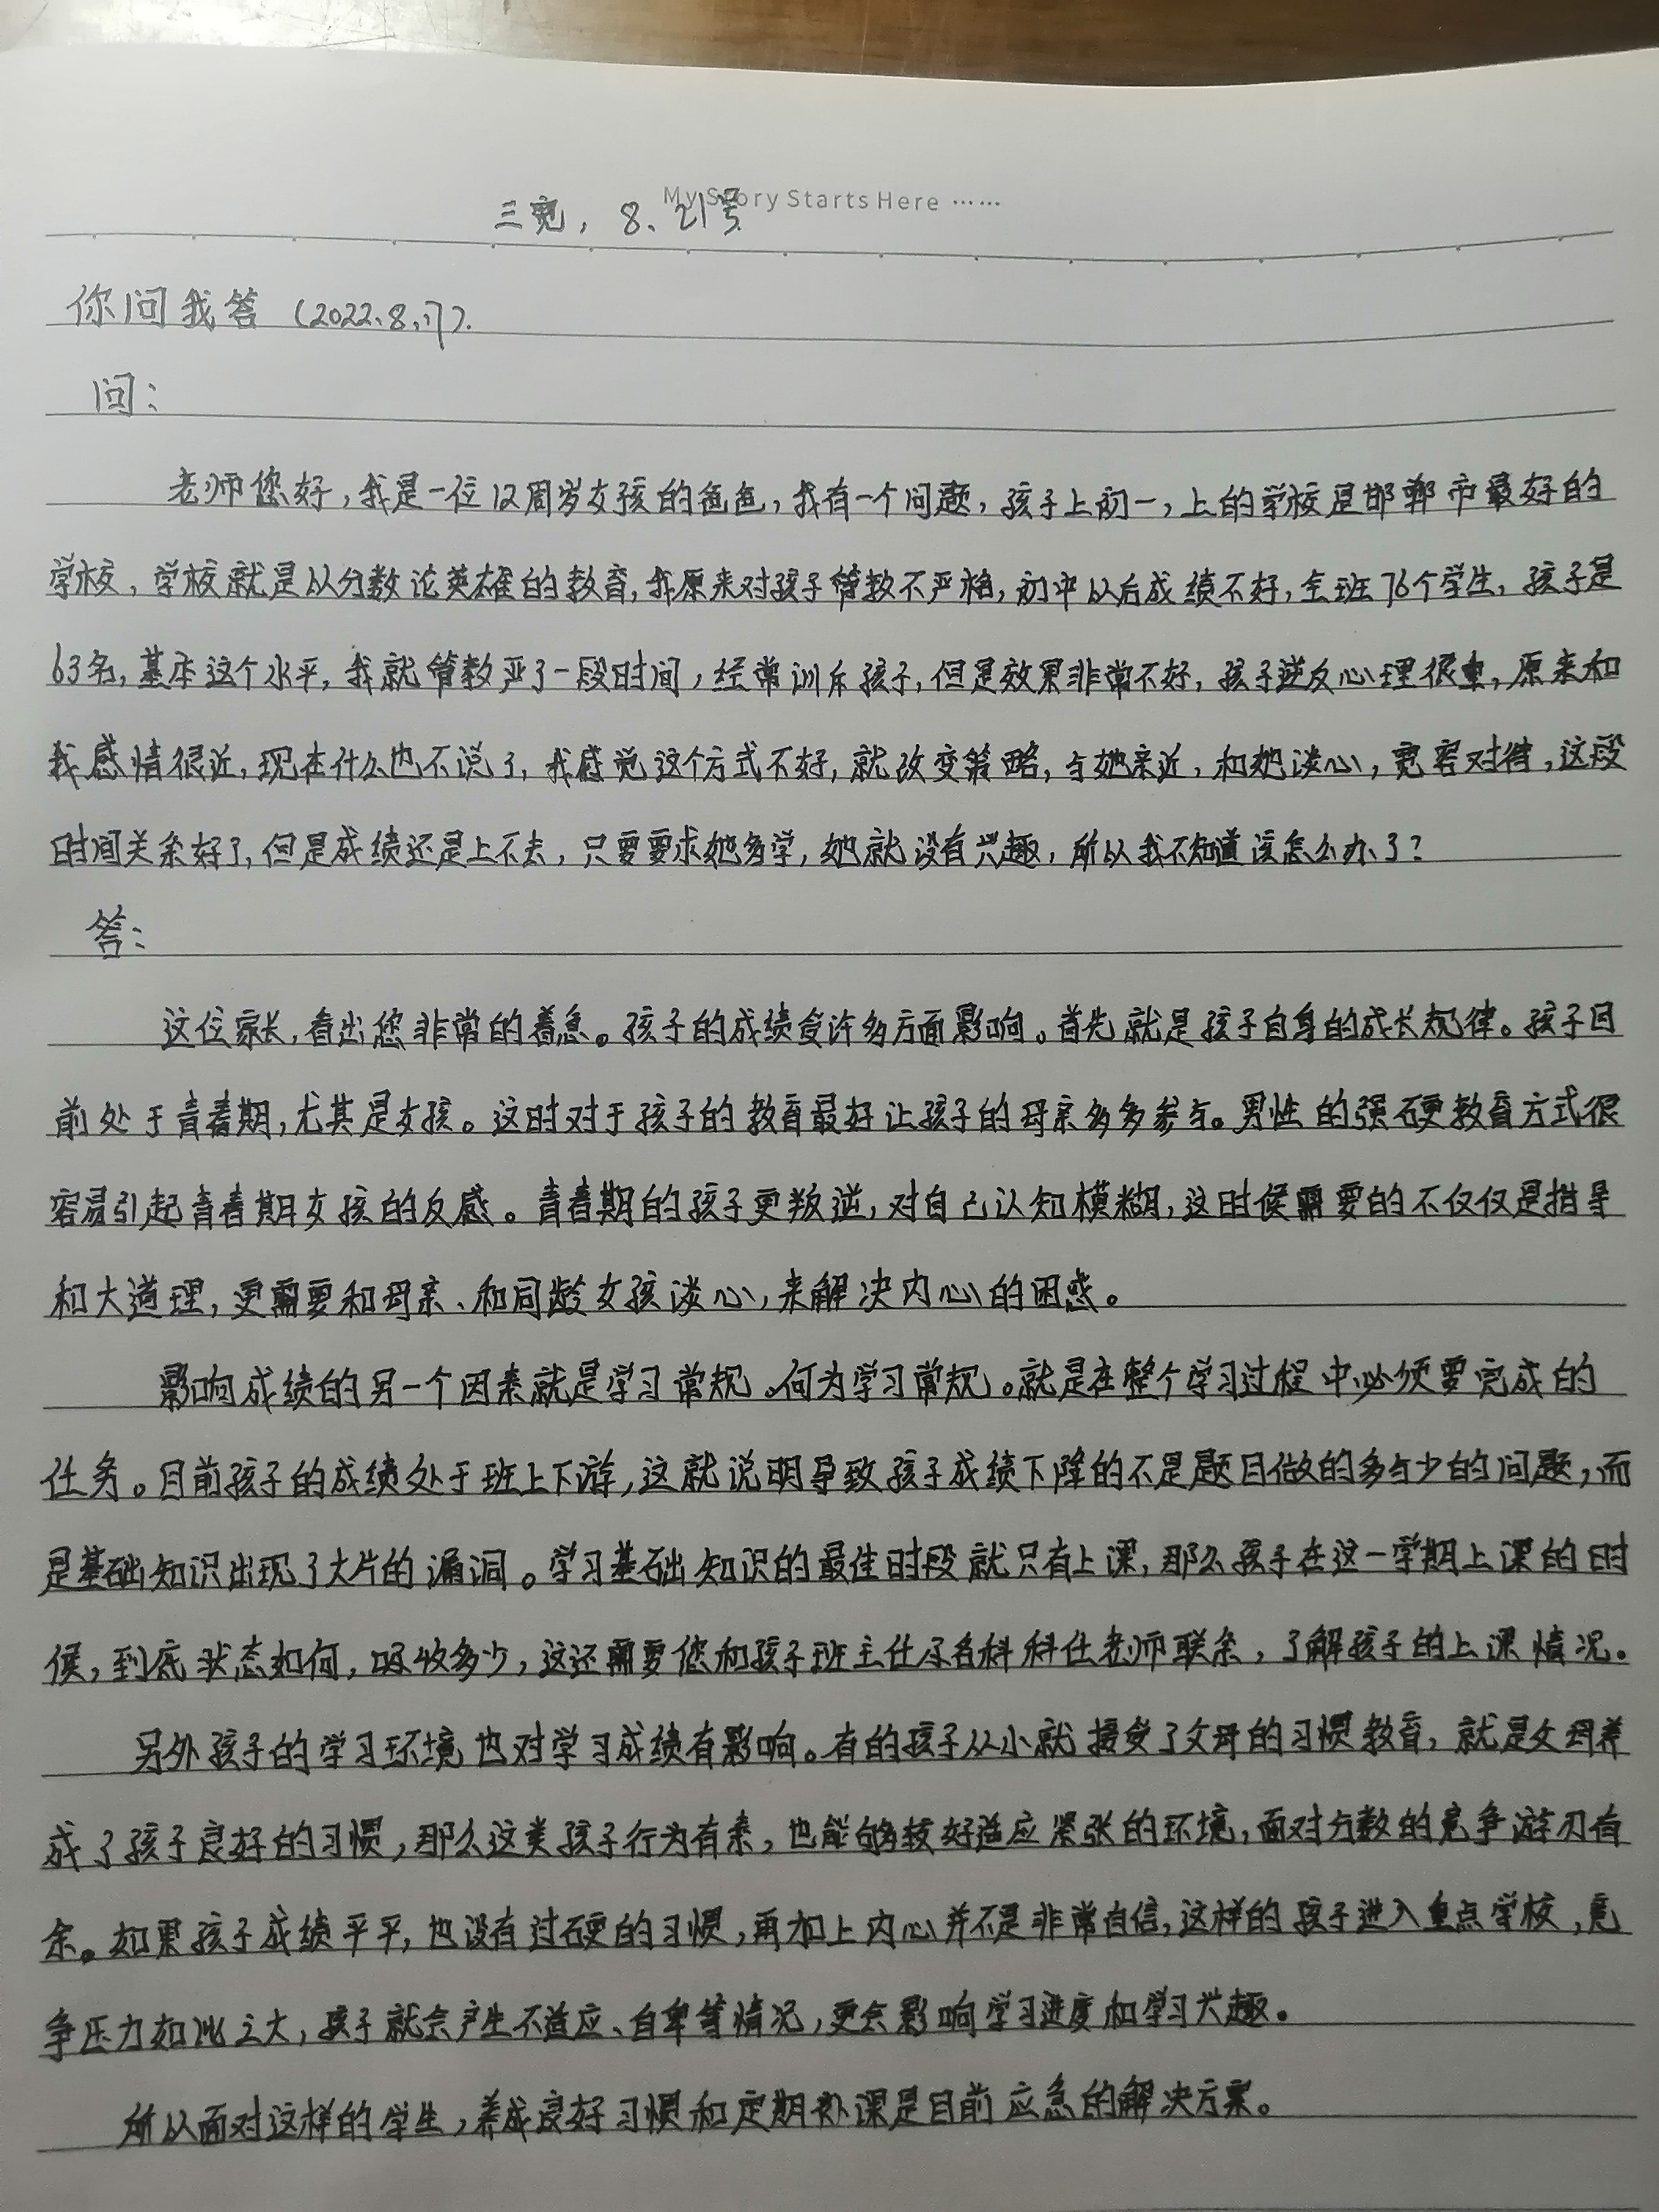 My Story Starts Here ……
三宽，8、21号
你问我答（2022、8、17）.
问：
老师您好，我是一位12周岁女孩的爸爸，我有一个问题，孩子上初一，上的学校是邯郸市最好的
学校，学校就是以分数论英雄的教育，我原来对孩子管教不严格，初中以后成绩不好，全班76个学生，孩子是
63名，基本这个水平，我就管教严了一段时间，经常训斥孩子，但是效果非常不好，孩子逆反心理很重，原来和
我感情很近，现在什么也不说了，我感觉这个方式不好，就改变策略，与她亲近，和她谈心，宽容对待，这段
时间关系好了，但是成绩还是上不去，只要要求她多学，她就没有兴趣，所以我不知道该怎么办了？
答：
这位家长，看出您非常的着急。孩子的成绩受许多方面影响。首先就是孩子自身的成长规律。孩子目
前处于青春期，尤其是女孩。这时对于孩子的教育最好让孩子的母亲多多参与。男性的强硬教育方式很
容易引起青春期女孩的反感。青春期的孩子更叛逆，对自己认知模糊，这时候需要的不仅仅是指导
和大道理，更需要和母亲、和同龄女孩谈心，来解决内心的困惑。
影响成绩的另一个因素就是学习常规。何为学习常规。就是在整个学习过程中必须要完成的
任务。目前孩子的成绩处于班上下游，这就说明导致孩子成绩下降的不是题目做的多与少的问题，而
是基础知识出现了大片的漏洞。学习基础知识的最佳时段就只有上课，那么孩子在这一学期上课的时
候，到底状态如何，吸收多少，这还需要您和孩子班主任及各科科任老师联系，了解孩子的上课情况。
另外孩子的学习环境也对学习成绩有影响。有的孩子从小就接受了父母的习惯教育，就是父母养
成了孩子良好的习惯，那么这类孩子行为有素，也能够较好适应紧张的环境，面对分数的竞争游刃有
余。如果孩子成绩平平，也没有过硬的习惯，再加上内心并不是非常自信，这样的孩子进入重点学校，竞
争压力如此之大，孩子就会产生不适应、自卑等情况，更会影响学习进度和学习兴趣。
所以面对这样的学生，养成良好习惯和定期补课是目前应急的解决方案。